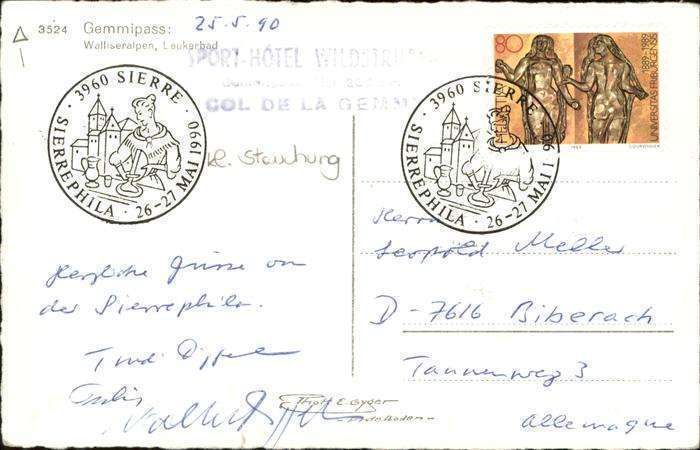 3524 Gemmipass:
Walliseralpen, Leukerbad
25.5.90
SPORT-HÔTEL WILDSTRUBEL
COL DE LA GEMMI
3960 SIERRE · SIERREPHILA · 26-27 MAI 1990
kl. Stauchung
3960 SIERRE · SIERREPHILA · 26-27 MAI 1990
80
HELVETIA
1889-1989
UNIVERSITAS FRIBURGENSIS
Herzliche Grüsse von
der Sierrephila.
Herrn
Leopold Meller
D-7616 Biberach
Tannenweg 3
Allemagne
Photo E. Gyger
Adelboden